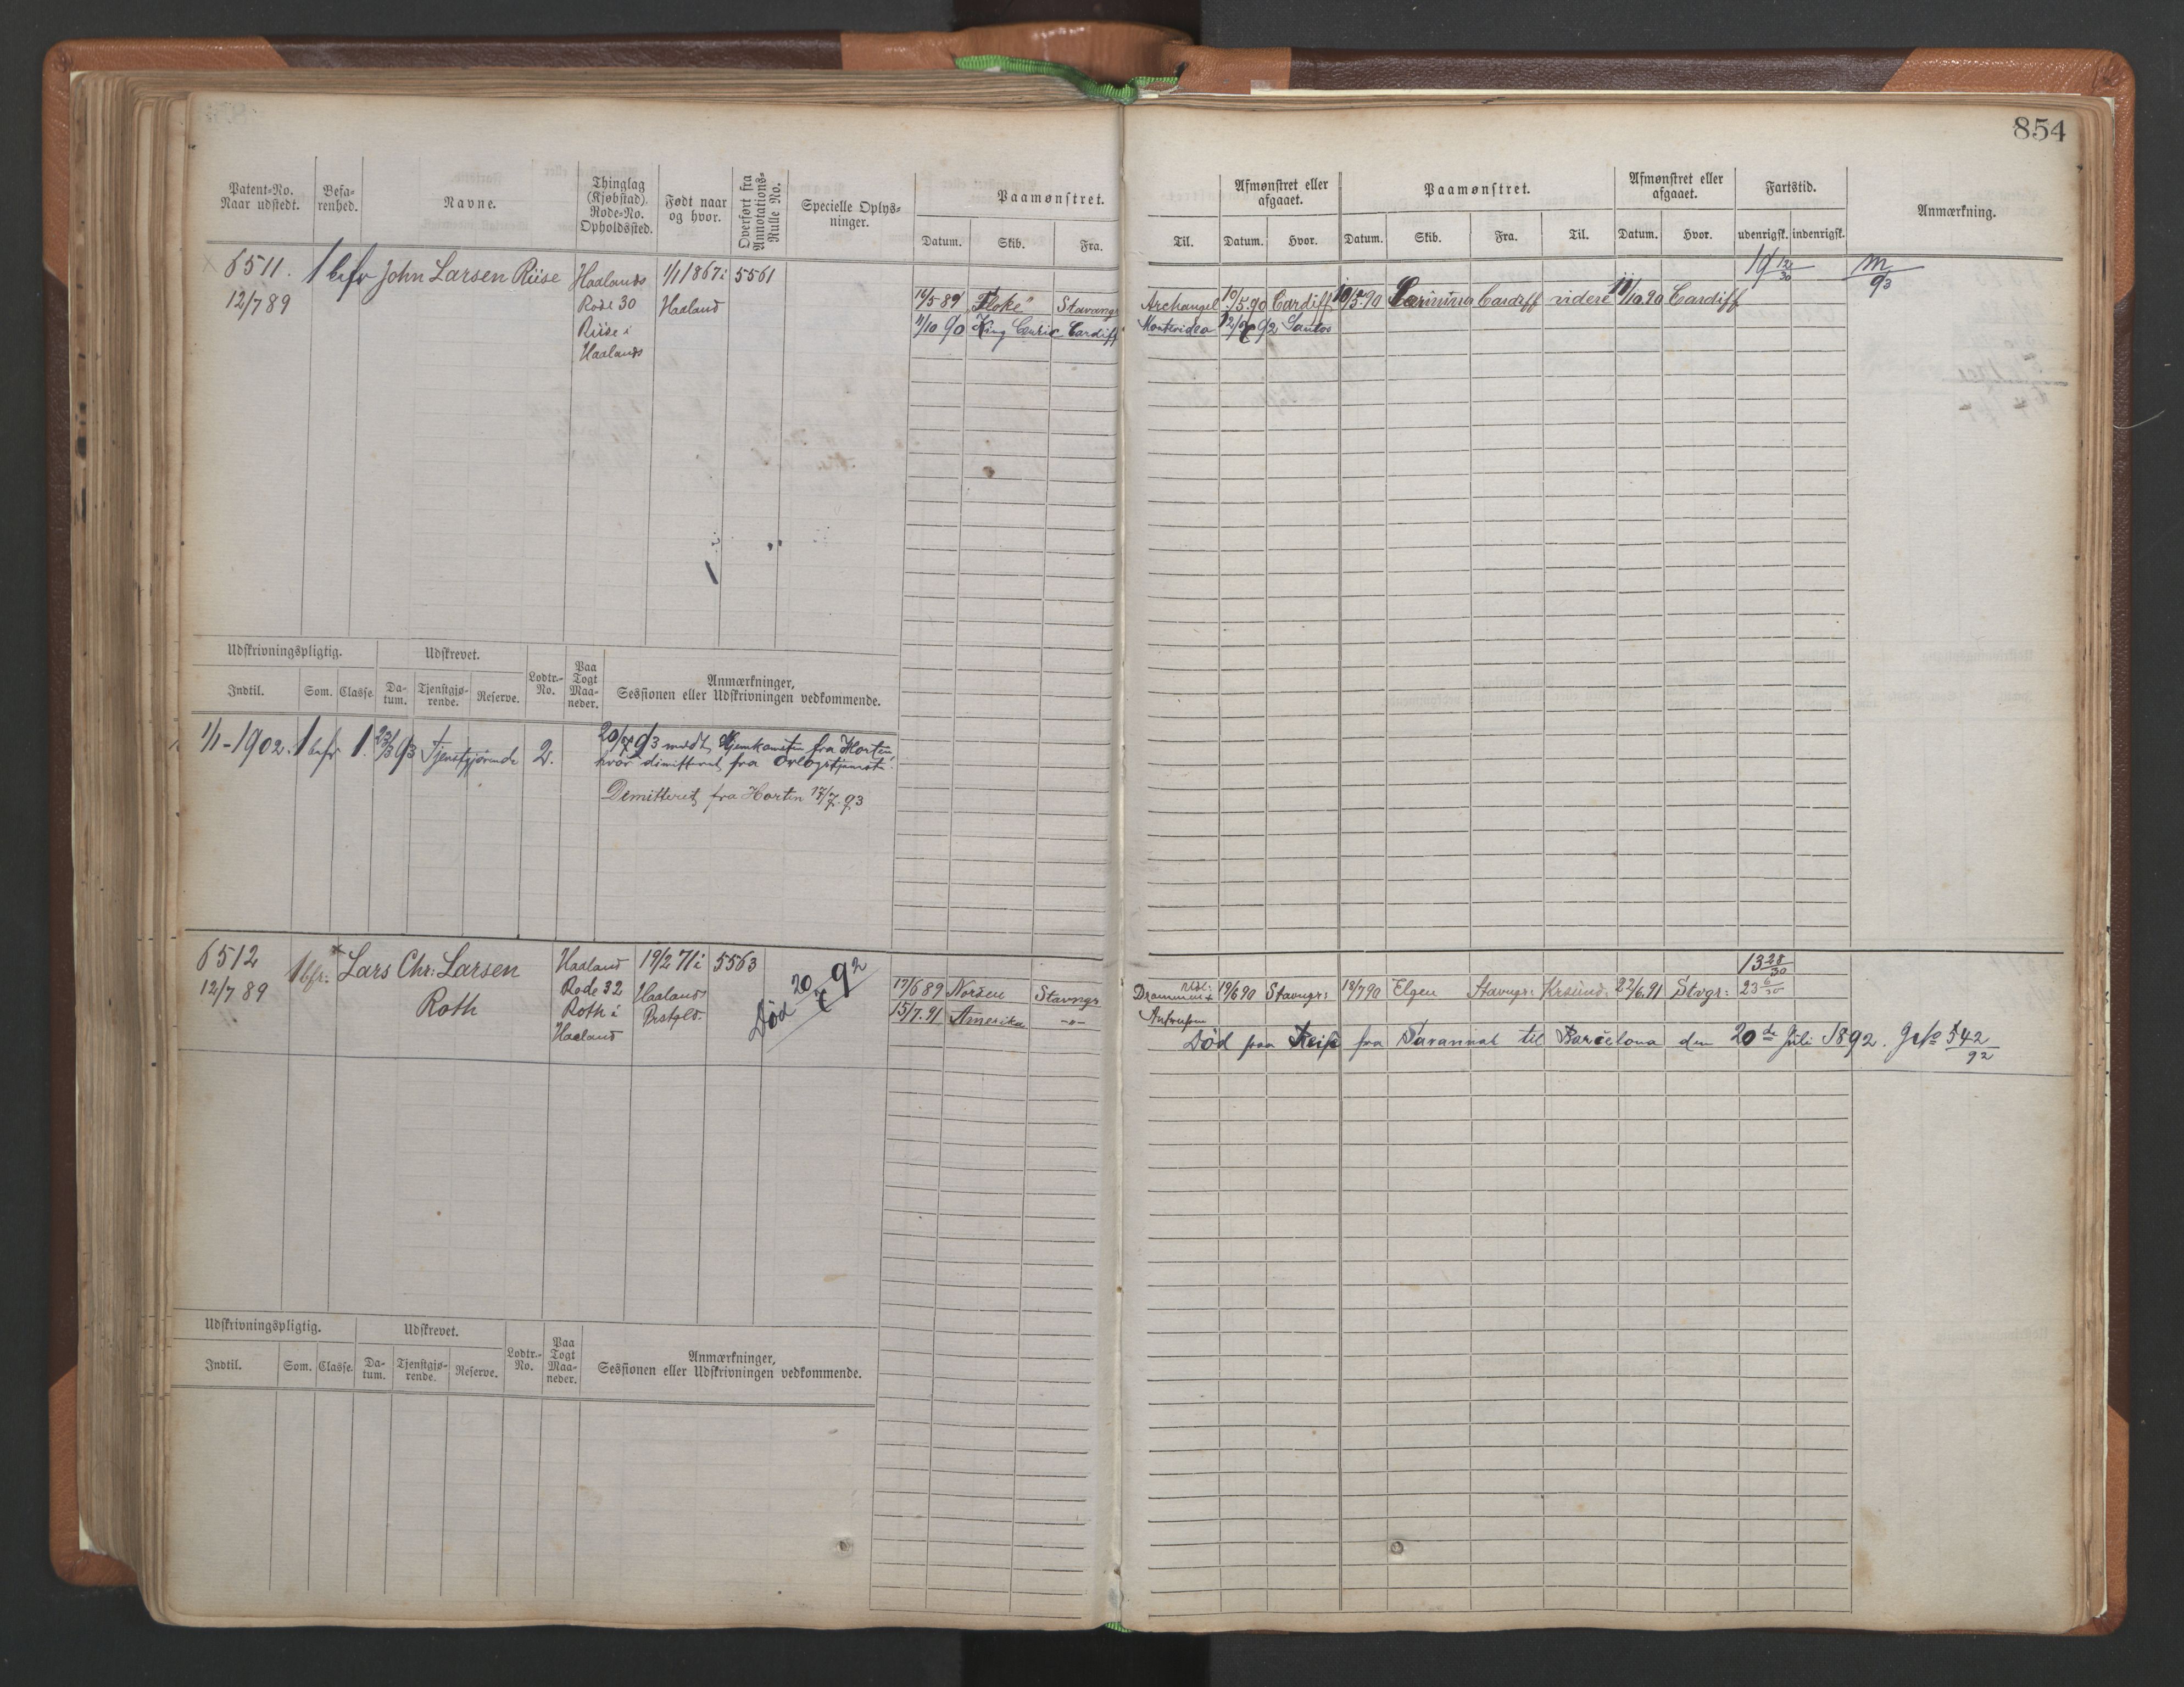 854
Patent-No. Naar udstedt.
Befarenhed.
Navne.
Thinglag (Kjøbstad). Rode-No. Opholdssted.
Født naar og hvor.
Overført fra Annotations-Rulle No.
Specielle Oplysninger.
Paamønstret.
Datum. Skib. Fra.
Til.
Afmønstret eller afgaaet.
Datum. Hvor.
Paamønstret.
Datum. Skib. Fra. Til.
Afmønstret eller afgaaet.
Datum. Hvor.
Fartstid.
udenrigsk. indenrigsk.
Anmærkning.
6511. 1 befr John Larsen Riise Haalands 1/1 1867 i 5561
12/7 89 Rode 30 Haaland
Riise i
Haalands
19 12/30 m/93
14/5 89 "Floke" Stavangr Archangel 10/5.90 Cardiff 10/5.90 Cardiff videre 11/10.90 Cardiff
11/10 90 King Cenric Cardiff Montevideo 12/7 92 Santos
Udskrivningspligtig.
Udskrevet.
Lodtr.-No.
Paa Togt Maaneder.
Anmærkninger, Sessionen eller Udskrivningen vedkommende.
Indtil. Som. Classe. Datum. Tjenstgjørende. Reserve.
1/1-1902. 1 befr 1. 22/3 93 Tjenstgjørende 2.
20/7 93 meldt Hjemkomsten fra Horten
hvor dimitteret fra Orlogstjeneste.
Demitteret fra Horten 17/7.93
6512 1 bfr: * Lars Chr. Larsen Haaland 19/2 71 i 5563
12/7 89 Roth Rode 32 Haalands
Roth i Prstgld.
Haaland
Død 20/7 92
13 28/30
17/6 89 Norden Stavngr Drammen 19/6 90 Stavngr: 18/7 90 Elgen Stavngr: Krsund. 22/6.91 Stvgr: 23 6/30
15/7.91 Amerika -"- Antwerpen
Død paa Reise fra Savannah til Barcelona den 20de Juli 1892. J No 542/92
Udskrivningspligtig.
Udskrevet.
Lodtr.-No.
Paa Togt Maaneder.
Anmærkninger, Sessionen eller Udskrivningen vedkommende.
Indtil. Som. Classe. Datum. Tjenstgjørende. Reserve.